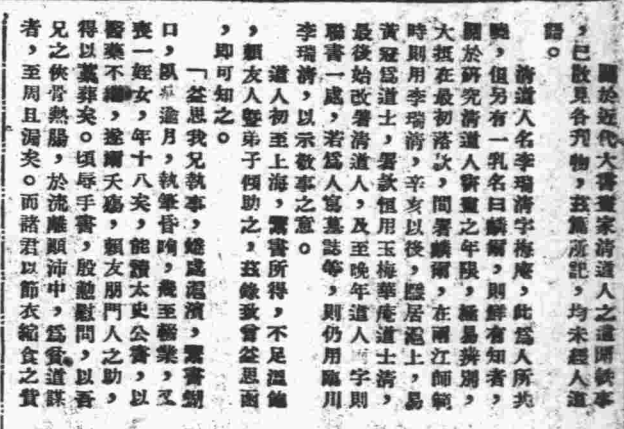 關於近代大書畫家清道人之遺聞軼事
,已散見各刊物,茲篇所記,均未經人道
語。
清道人名李瑞清字梅庵,此爲人所共
曉,但另有一乳名曰麟爾,則鮮有知者,
關於研究清道人書畫之年限,極易辨別,
大抵在最初落款,間署麟爾,在兩江師範
時則用李瑞清,辛亥以後,隱居滬上,易
黃冠爲道士,署款恒用玉梅華庵道士清,
最後始改署清道人,及至晚年道人二字則
聯書一處,若爲人寫墓誌等,則仍用臨川
李瑞清,以示敬事之意。
道人初至上海,鬻書所得,不足溫飽
,賴友人暨弟子傾助之,茲錄致曾益思函
,即可知之。
「益思我兄執事,蟄處滬濱,鬻書餬
口,臥病逾月,執筆昏嘵,幾至輟業,又
喪一姪女,年十八矣,能讀太史公書,以
醫藥不繼,遂爾夭殤,賴友朋門人之助,
得以藁葬矣。頃辱手書,殷懃慰問,以吾
兄之俠骨熱腸,於流離顛沛中,爲貧道謀
者,至周且渥矣。而諸君以節衣縮食之貲